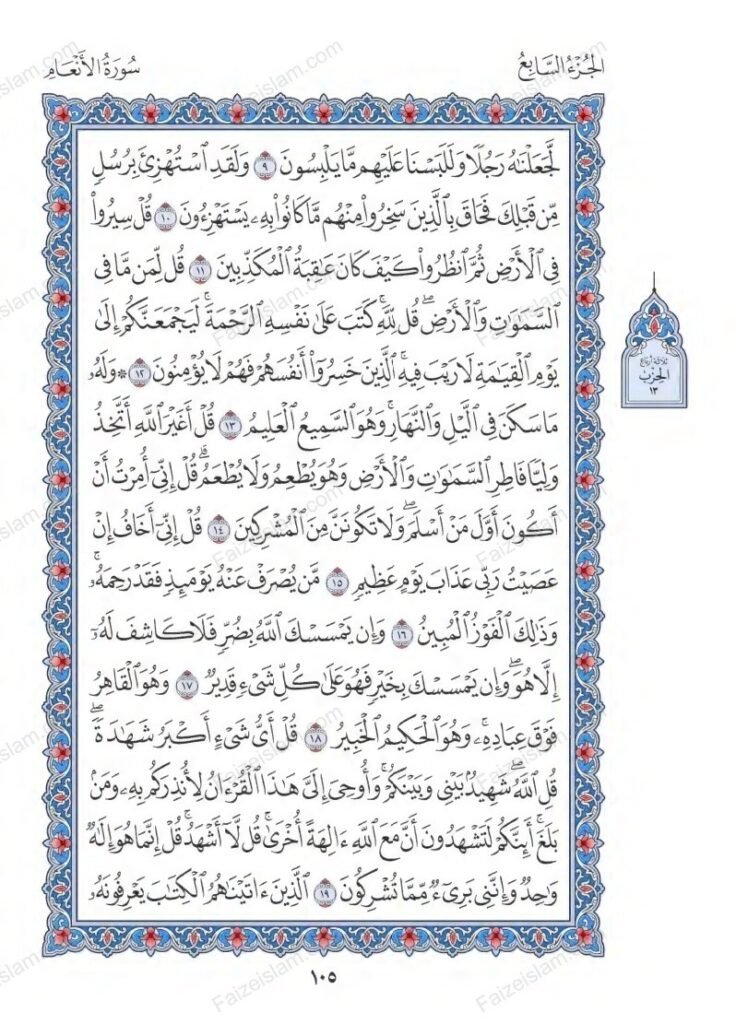 الجُزْءُ السَّابِعُ
سُورَةُ الأَنْعَام
لَّجَعَلْنَٰهُ رَجُلًا وَلَلَبَسْنَا عَلَيْهِم مَّا يَلْبِسُونَ ٩ وَلَقَدِ ٱسْتُهْزِئَ بِرُسُلٍ
مِّن قَبْلِكَ فَحَاقَ بِٱلَّذِينَ سَخِرُوا۟ مِنْهُم مَّا كَانُوا۟ بِهِۦ يَسْتَهْزِءُونَ ١٠ قُلْ سِيرُوا۟
فِى ٱلْأَرْضِ ثُمَّ ٱنظُرُوا۟ كَيْفَ كَانَ عَٰقِبَةُ ٱلْمُكَذِّبِينَ ١١ قُل لِّمَن مَّا فِى
ٱلسَّمَٰوَٰتِ وَٱلْأَرْضِ ۖ قُل لِّلَّهِ ۚ كَتَبَ عَلَىٰ نَفْسِهِ ٱلرَّحْمَةَ ۚ لَيَجْمَعَنَّكُمْ إِلَىٰ
يَوْمِ ٱلْقِيَٰمَةِ لَا رَيْبَ فِيهِ ۚ ٱلَّذِينَ خَسِرُوٓا۟ أَنفُسَهُمْ فَهُمْ لَا يُؤْمِنُونَ ١٢ ۞ وَلَهُۥ
مَا سَكَنَ فِى ٱلَّيْلِ وَٱلنَّهَارِ ۚ وَهُوَ ٱلسَّمِيعُ ٱلْعَلِيمُ ١٣ قُلْ أَغَيْرَ ٱللَّهِ أَتَّخِذُ
وَلِيًّا فَاطِرِ ٱلسَّمَٰوَٰتِ وَٱلْأَرْضِ وَهُوَ يُطْعِمُ وَلَا يُطْعَمُ ۗ قُلْ إِنِّىٓ أُمِرْتُ أَنْ
أَكُونَ أَوَّلَ مَنْ أَسْلَمَ ۖ وَلَا تَكُونَنَّ مِنَ ٱلْمُشْرِكِينَ ١٤ قُلْ إِنِّىٓ أَخَافُ إِنْ
عَصَيْتُ رَبِّى عَذَابَ يَوْمٍ عَظِيمٍ ١٥ مَّن يُصْرَفْ عَنْهُ يَوْمَئِذٍ فَقَدْ رَحِمَهُۥ ۚ
وَذَٰلِكَ ٱلْفَوْزُ ٱلْمُبِينُ ١٦ وَإِن يَمْسَسْكَ ٱللَّهُ بِضُرٍّ فَلَا كَاشِفَ لَهُۥٓ
إِلَّا هُوَ ۖ وَإِن يَمْسَسْكَ بِخَيْرٍ فَهُوَ عَلَىٰ كُلِّ شَىْءٍ قَدِيرٌ ١٧ وَهُوَ ٱلْقَاهِرُ
فَوْقَ عِبَادِهِۦ ۚ وَهُوَ ٱلْحَكِيمُ ٱلْخَبِيرُ ١٨ قُلْ أَىُّ شَىْءٍ أَكْبَرُ شَهَٰدَةً ۖ
قُلِ ٱللَّهُ ۖ شَهِيدٌۢ بَيْنِى وَبَيْنَكُمْ ۚ وَأُوحِىَ إِلَىَّ هَٰذَا ٱلْقُرْءَانُ لِأُنذِرَكُم بِهِۦ وَمَنۢ
بَلَغَ ۚ أَئِنَّكُمْ لَتَشْهَدُونَ أَنَّ مَعَ ٱللَّهِ ءَالِهَةً أُخْرَىٰ ۚ قُل لَّآ أَشْهَدُ ۚ قُلْ إِنَّمَا هُوَ إِلَٰهٌ
وَٰحِدٌ وَإِنَّنِى بَرِىٓءٌ مِّمَّا تُشْرِكُونَ ١٩ ٱلَّذِينَ ءَاتَيْنَٰهُمُ ٱلْكِتَٰبَ يَعْرِفُونَهُۥ
ثلاثة أرباع
الحِزْب
١٣
١٠٥
Faizeislam.com